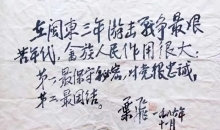 在闽东三年游击战争最艰
苦年代，畲族人民作用很大：
第一最保守秘密，对党很忠诚。
第二最团结。
叶飞 一九八七年
十一月